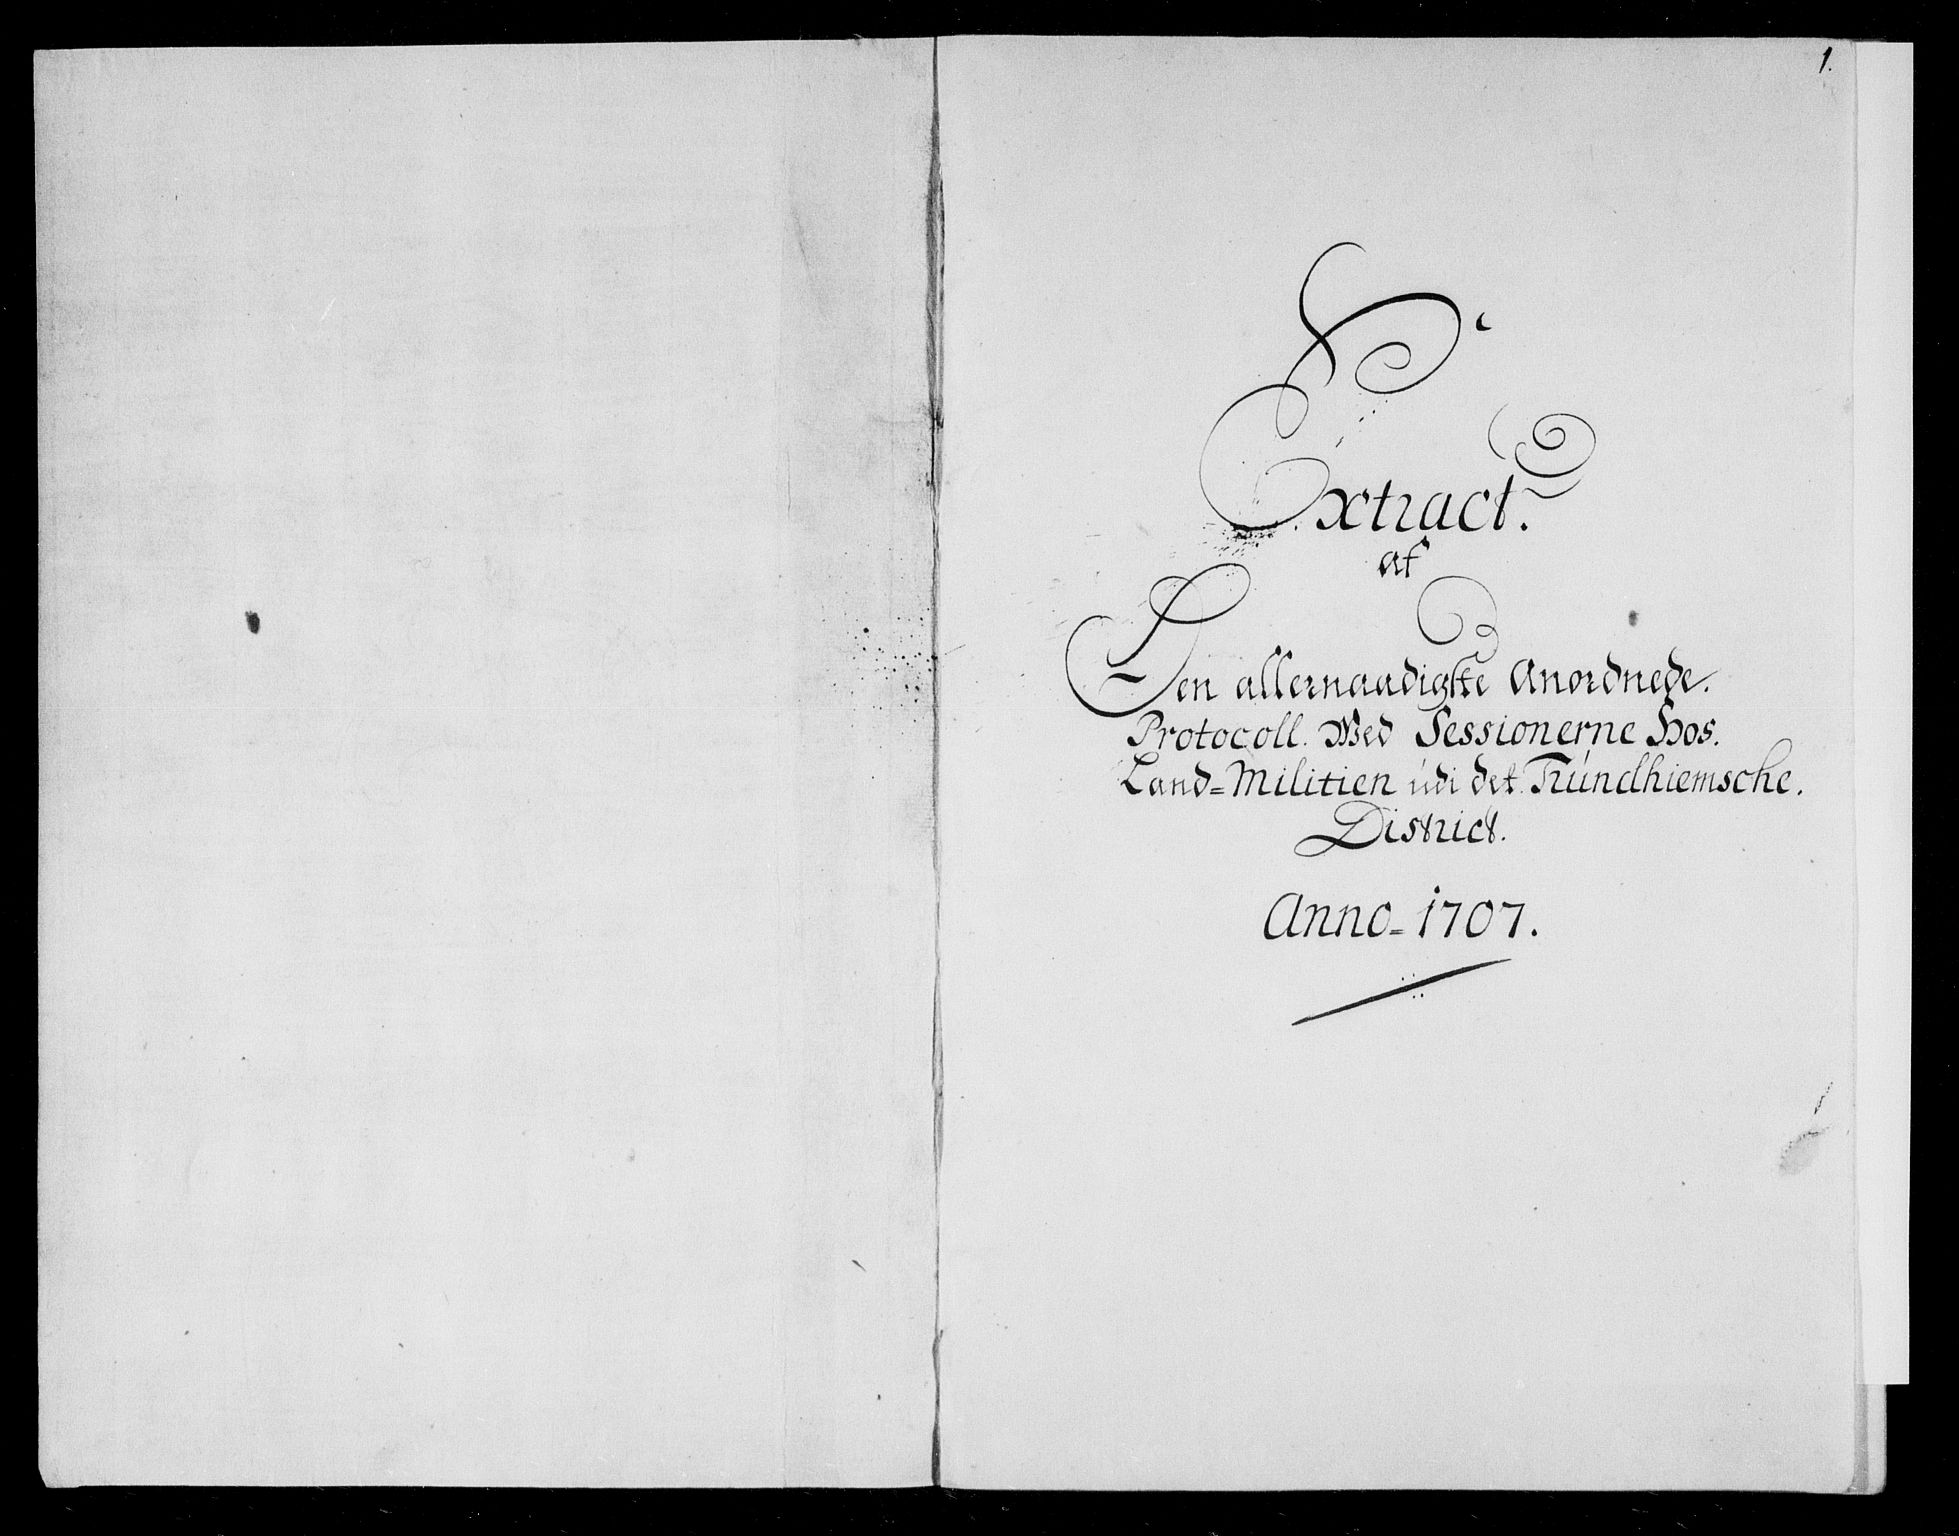 1.
Extract.
af
Den allernaadigste Anordnede.
Protocoll. Wed Sessionerne Hos.
Land=Militien údi det Trúndhiemsche.
District.
Anno=1707.